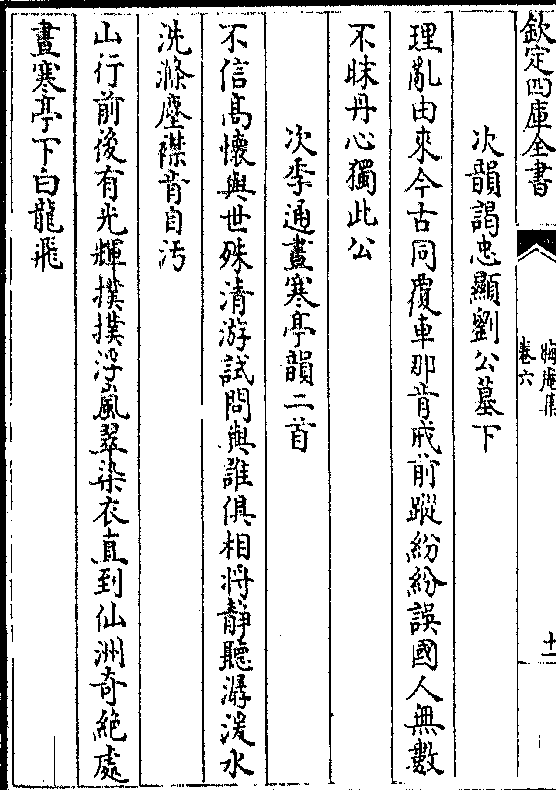 欽定四庫全書
晦庵集
卷六
十一
次韻謁忠顯劉公墓下
理亂由來今古同覆車那肯戒前蹤紛紛誤國人無數
不昧丹心獨此公
次季通晝寒亭韻二首
不信髙懷與世殊清游試問與誰俱相將靜聽潺湲水
洗滌塵襟肯自汚
山行前後有光輝撲撲浮嵐翠染衣直到仙洲奇絶處
晝寒亭下白龍飛